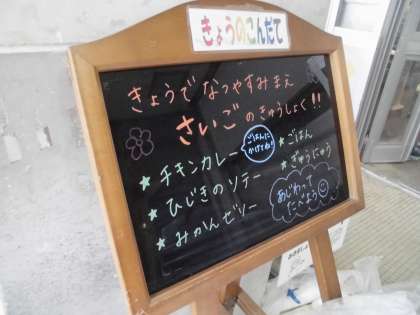 きょうのこんだて
きょうでなつやすみまえ
さいごのきゅうしょく!!
★チキンカレー
ごはんに
かけてね!
★ひじきのソテー
★みかんゼリー
★ごはん
★ぎゅうにゅう
あじわって
たべよう